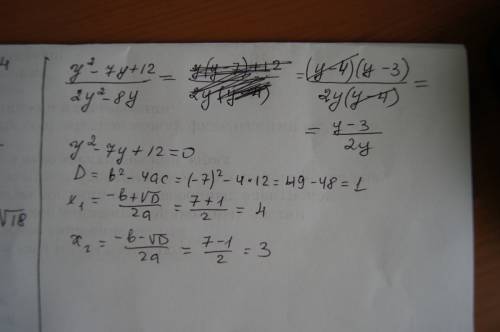 4
√18
(y² - 7y + 12)/(2y² - 8y) = (y(y-7)+12)/(2y(y-4)) = ((y-4)(y-3))/(2y(y-4)) =
= (y-3)/(2y)
y² - 7y + 12 = 0
D = b² - 4ac = (-7)² - 4·12 = 49 - 48 = 1
x₁ = (-b+√D)/(2a) = (7+1)/2 = 4
x₂ = (-b-√D)/(2a) = (7-1)/2 = 3